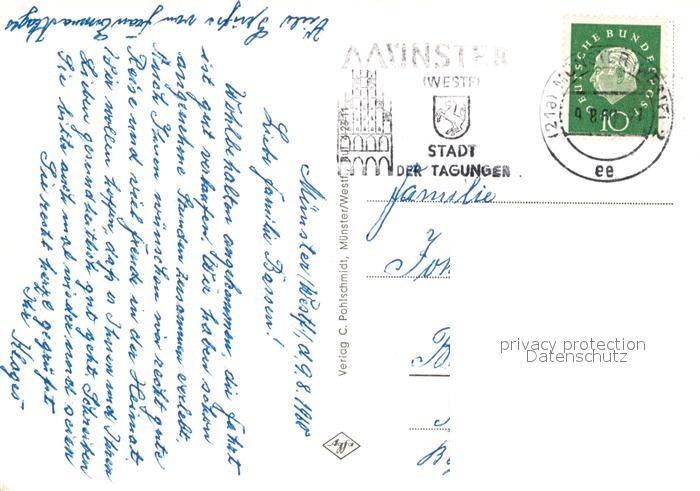 Münster (Westf), d. 9.8.1960
Liebe Familie
Wohlbehalten angekommen, die Fahrt
ist gut verlaufen. Wir haben schon
angenehme Stunden zusammen verlebt.
Auch Ihnen wünschen wir recht gute
Reise und viel Freude in der Heimat
Wir wollen hoffen, daß es Ihnen und Ihren
Lieben gesundheitlich gut geht. Schreiben
Sie bitte auch mal wieder und seien
Sie recht herzl. gegrüßt
Ihre
Viele Grüße von Frau
Verlag C. Pohlschmidt, Münster/Westf.
MÜNSTER
(WESTF)
STADT
DER TAGUNGEN
DEUTSCHE BUNDESPOST
10
(21a) MÜNSTER (WESTF)
9.8.60
ee
Familie
privacy protection
Datenschutz